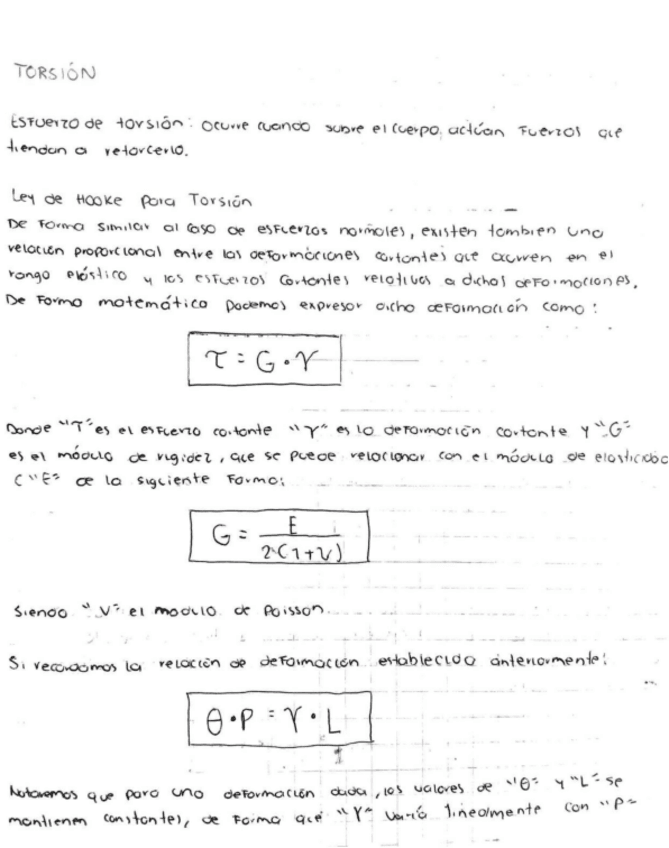 TORSIÓN
Esfuerzo de torsión: Ocurre cuando sobre el cuerpo, actúan fuerzas que
tiendan a retorcerlo.
Ley de Hooke para Torsión
De forma similar al caso de esfuerzos normales, existen tambien una
relación proporcional entre las deformaciones cortantes que ocurren en el
rango elástico y los esfuerzos cortantes relativos a dichas deformaciones.
De forma matemática podemos expresar dicha deformación como:
τ = G · γ
Donde "τ" es el esfuerzo cortante "γ" es la deformación cortante y "G"
es el módulo de rigidez, que se puede relacionar con el módulo de elasticidad
("E" de la siguiente forma:
G = E / 2(1+ν)
Siendo "ν" el modulo de Poisson.
Si recordamos la relación de deformación establecida anteriormente:
θ · P = γ · L
Notaremos que para una deformación dada, los valores de "θ" y "L" se
mantienen constantes, de forma que "γ" varía linealmente con "P"